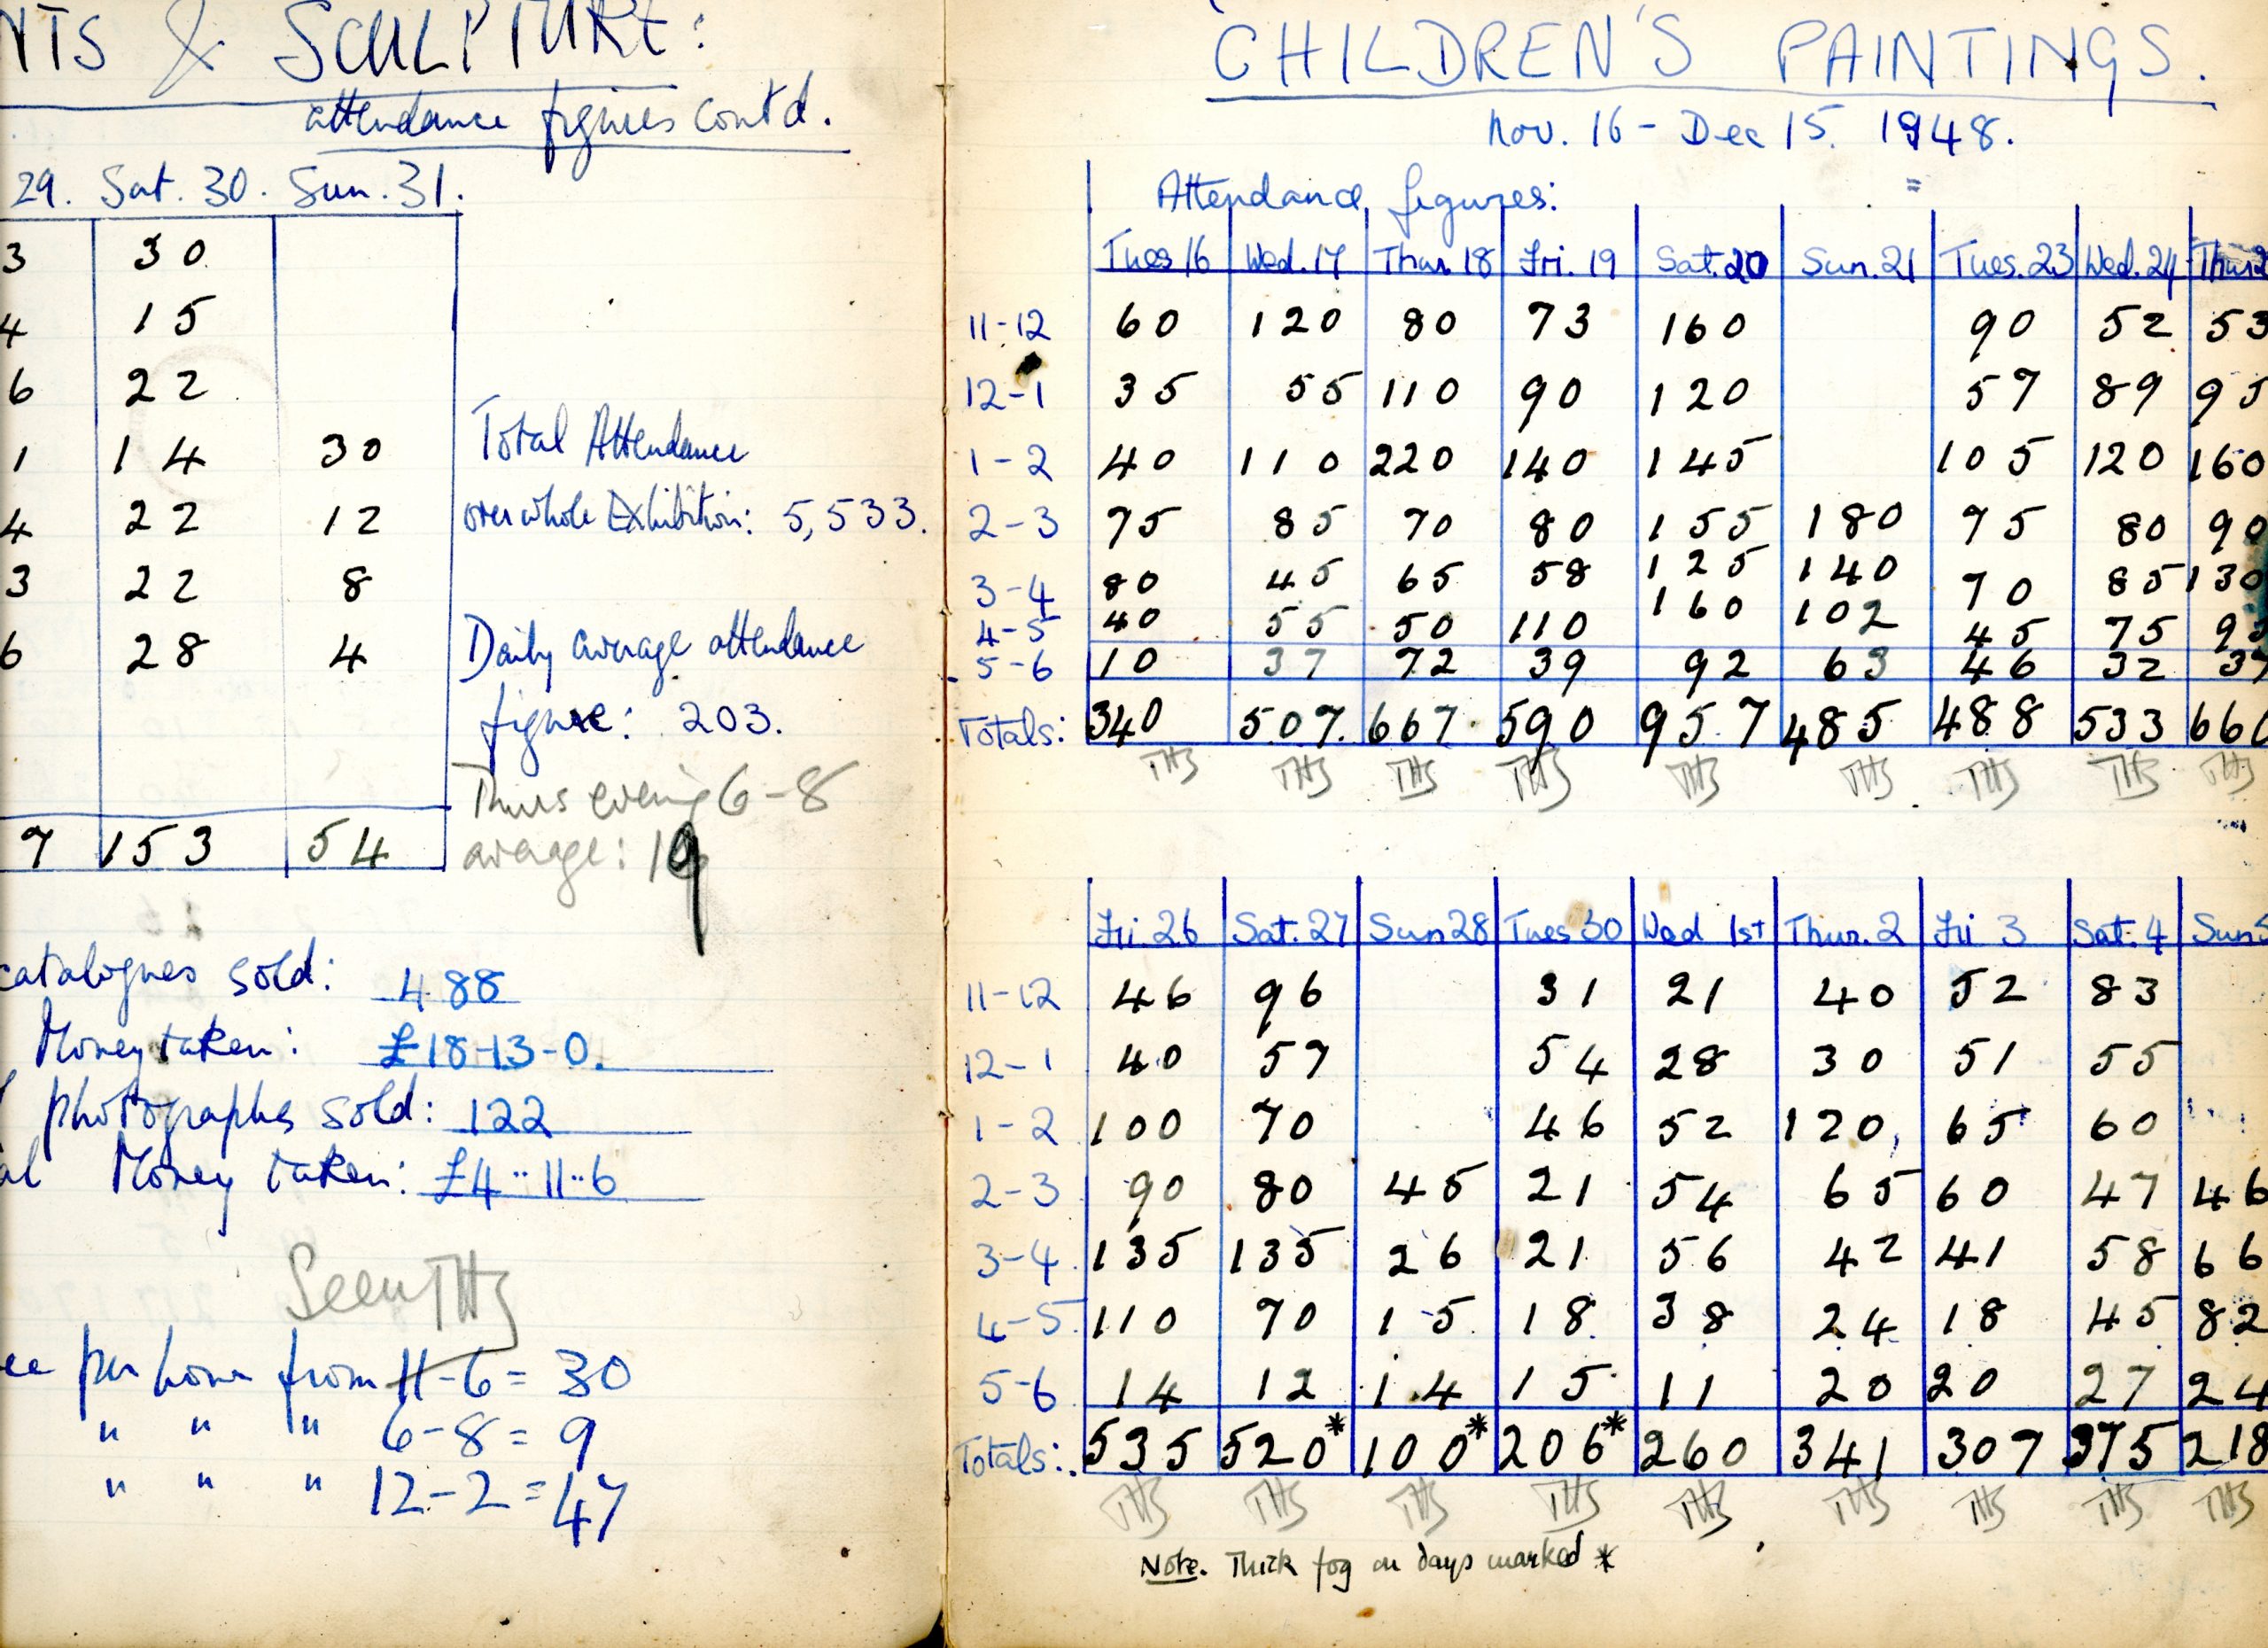 NTS & SCULPTURE:
attendance figures contd.
29. Sat. 30. Sun. 31.
3 30
4 15
6 22
1 14 30
4 22 12
3 22 8
6 28 4
7 153 54
Total Attendance
over whole Exhibition: 5,533.
Daily average attendance
figure: 203.
Thurs evening 6-8
average: 19
catalogues sold: 488
Money taken: £18-13-0.
photographs sold: 122
al Money taken: £4··11··6
Seen THS
ce per hour from 11-6 = 30
" " " 6-8 = 9
" " " 12-2 = 47
CHILDREN'S PAINTINGS.
Nov. 16 - Dec 15. 1948.
Attendance figures:
Tues 16 Wed. 17 Thur 18 Fri. 19 Sat. 20 Sun. 21 Tues. 23 Wed. 24 Thur 2
11-12 60 120 80 73 160 90 52 53
12-1 35 55 110 90 120 57 89 95
1-2 40 110 220 140 145 105 120 160
2-3 75 85 70 80 155 180 75 80 90
3-4 80 45 65 58 125 140 70 85 130
4-5 40 55 50 110 160 102 45 75
5-6 10 37 72 39 92 63 46 32 37
Totals: 340 507. 667. 590 957 485 488 533 66
THS THS THS THS THS THS THS THS THS
Fri 26 Sat. 27 Sun 28 Tues 30 Wed 1st Thur. 2 Fri 3 Sat. 4 Sun 5
11-12 46 96 31 21 40 52 83
12-1 40 57 54 28 30 51 55
1-2 100 70 46 52 120 65 60
2-3 90 80 45 21 54 65 60 47 46
3-4 135 135 26 21 56 42 41 58 66
4-5 110 70 15 18 38 24 18 45 82
5-6 14 12 14 15 11 20 20 27 24
Totals: 535 520* 100* 206* 260 341 307 375 218
THS THS THS THS THS THS THS THS THS
Note. Thick fog on days marked *